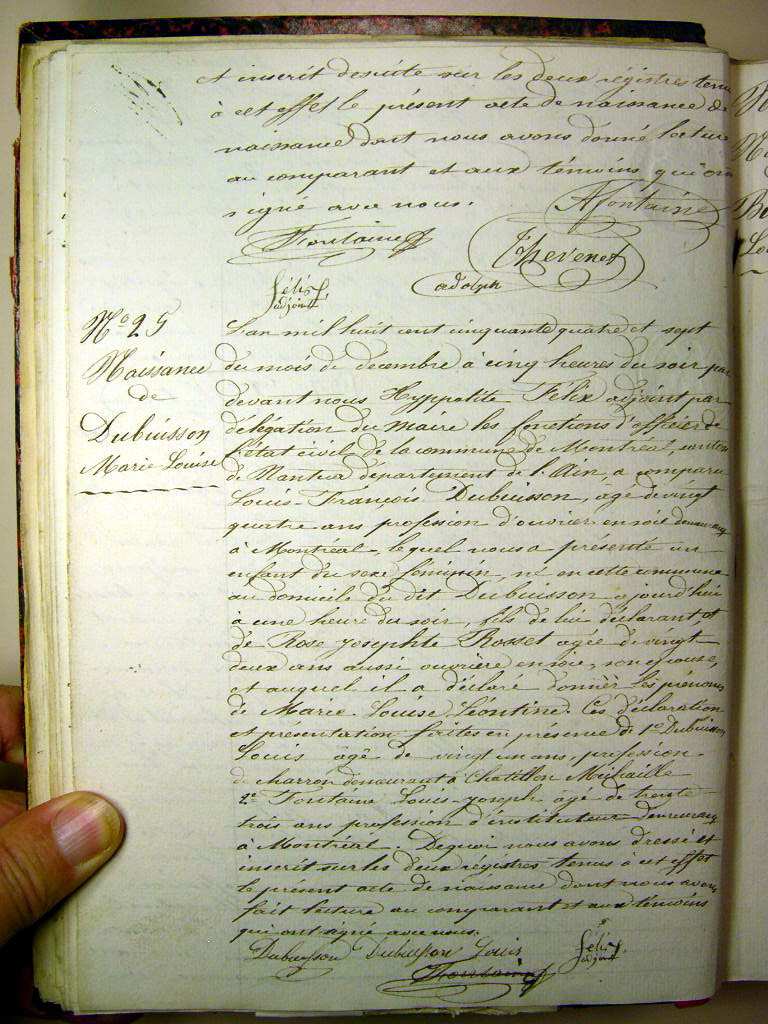 et inscrit desuite sur les deux régistres tenus
à cet effet le présent acte de naissance de
naissance dont nous avons donné lecture
au comparant et aux témoins qui ont
signé avec nous. AFontaine
Fontaine
Thevenet
adolph
félix
adjoint
L'an mil huit cent cinquante quatre et sept
du mois de décembre à cinq heures du soir par
devant nous Hyppolite Félix adjoint par
délégation du Maire les fonctions d'officier de
l'état civil de la commune de Montréal, canton
de Nantua département de l'Ain, a comparu
Louis-François Dubuisson, âgé de vingt
quatre ans profession d'ouvrier en soie demeurant
à Montréal, lequel nous a présenté un
enfant du sexe féminin, né en cette commune
au domicile du dit Dubuisson aujourd'hui
à une heure du soir, fils de lui déclarant, et
de Rose Josephte Rosset agée de vingt
deux ans aussi ouvrière en soie, son épouse,
et auquel il a déclaré donner les prénoms
de Marie Louise Léontine. Ces déclaration
et présentation faites en présence de 1o Dubuisson
Louis âgé de vingt un ans, profession
de charron demeurant à Chatillon Michaille
2o Fontaine Louis-Joseph âgé de trente
trois ans profession d'instituteur demeurant
à Montréal. Dequoi nous avons dressé et
inscrit sur les deux régistres tenus à cet effet
le présent acte de naissance dont nous avons
fait lecture au comparant et aux témoins
qui ont signé avec nous.
Dubuisson Dubuisson Louis félix
adjoint
Fontaine
No 25
Naissance
de
Dubuisson
Marie Louise